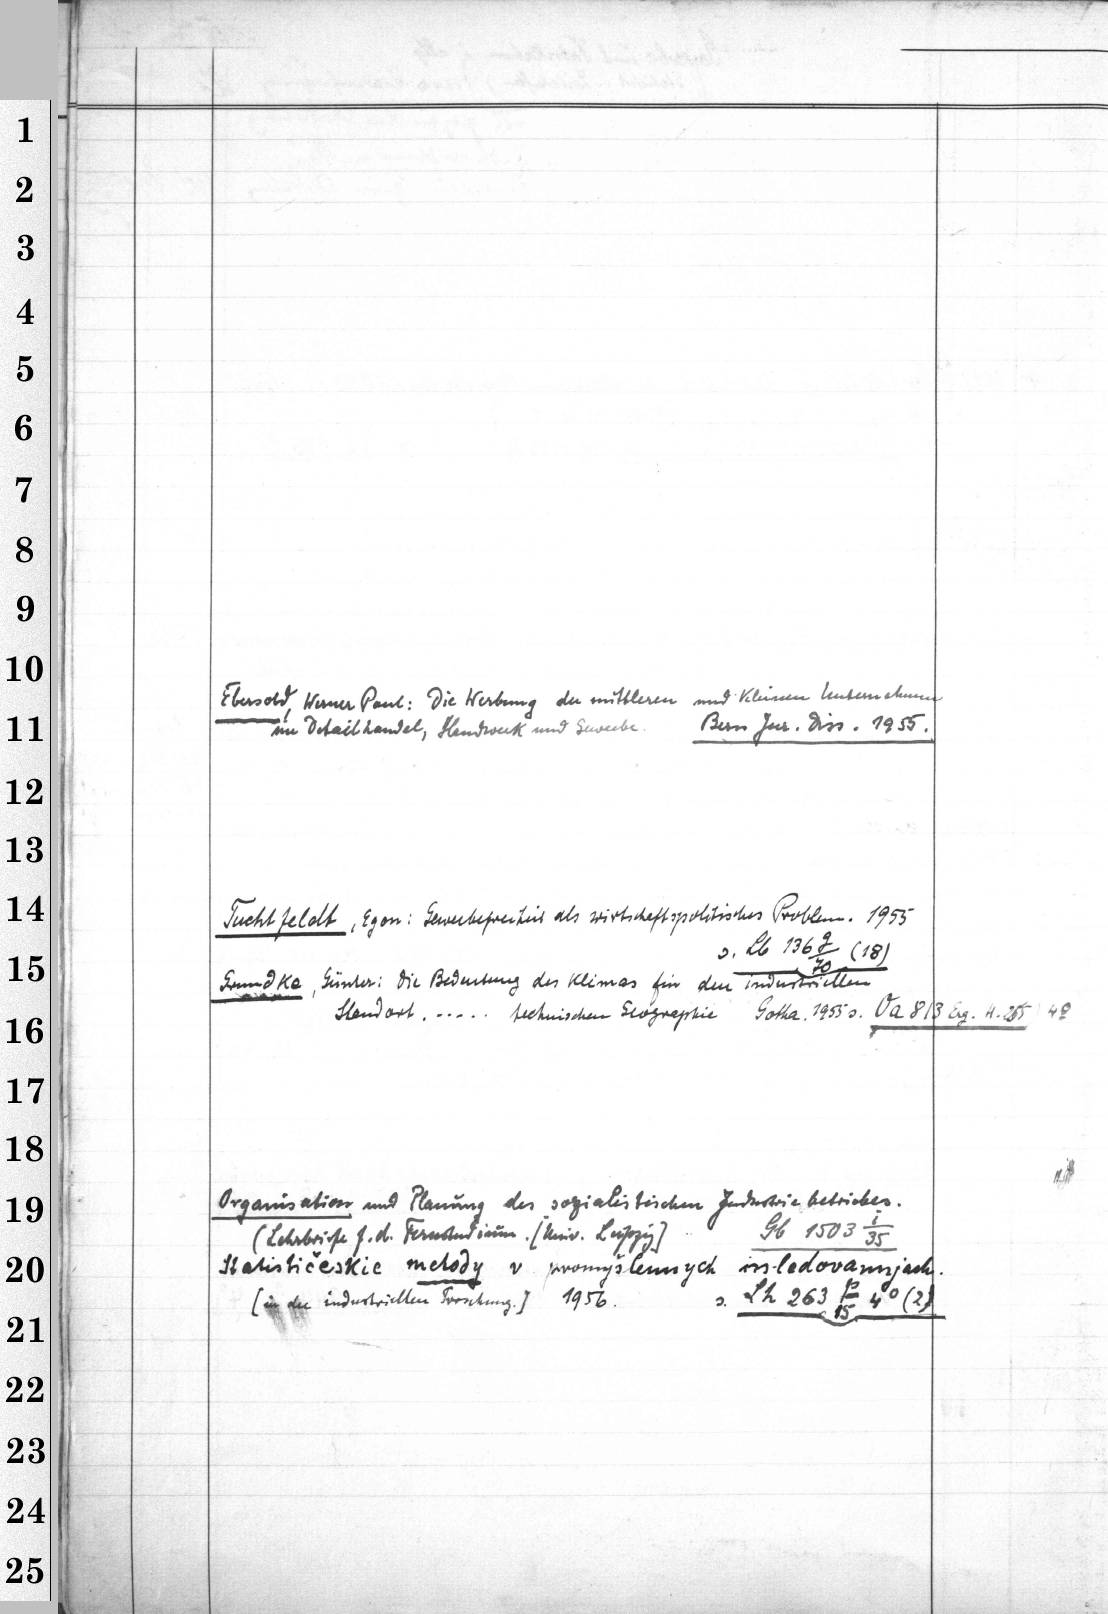 1
2
3
4
5
6
7
8
9
10
Ebersold, Werner Paul: Die Werbung der mittleren und kleinen Unternehmen
11
im Detailhandel, Handwerk und Gewerbe. Bern Jur. Diss. 1955.
12
13
14
Tuchtfeldt, Egon: Gewerbefreiheit als wirtschaftspolitisches Problem. 1955
s. Lb 136 g/70 (18)
15
Grundke, Günter: Die Bedeutung des Klimas für den industriellen
16
Standort ..... technischen Geographie Gotha. 1955 s. Va 813 Erg. H. 255 4º
17
18
19
Organisation und Planung des sozialistischen Industriebetriebes.
(Lehrbriefe f. d. Fernstudium. [Univ. Leipzig] Gb 1503 i/35
20
Statističeskie metody v promyšlennych issledovanijach.
[in der industriellen Forschung.] 1956. s. Lh 263 p/15 4º (2)
21
22
23
24
25